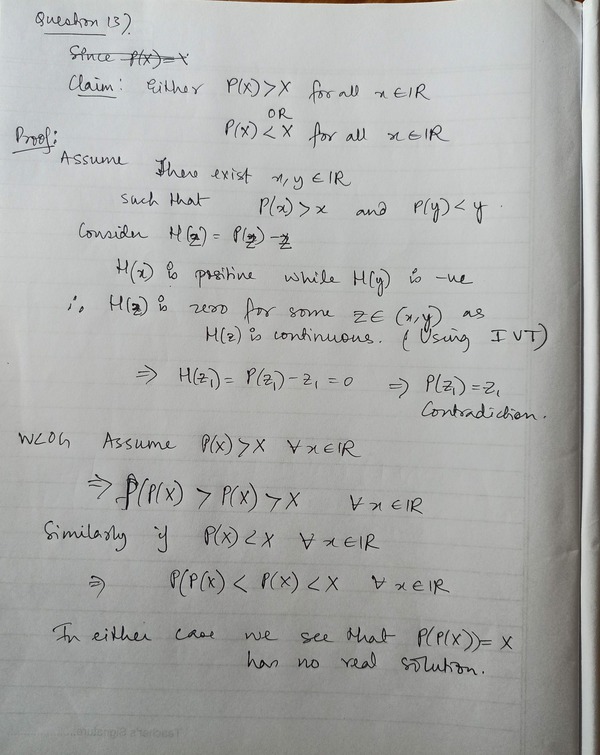 Question 13).
Since P(x)=x
Claim: Either P(x)>x for all x∈IR
OR
P(x)<x for all x∈IR
Proof:
Assume There exist x,y∈IR
such that P(x)>x and P(y)<y.
Consider H(z)=P(z)-z
H(x) is positive while H(y) is -ve
∴ H(z) is zero for some z∈(x,y) as
H(z) is continuous. (Using IVT)
⇒ H(z₁)=P(z₁)-z₁=0 ⇒ P(z₁)=z₁
Contradiction.
WLOG Assume P(x)>x ∀x∈IR
⇒ P(P(x)>P(x)>x ∀x∈IR
Similarly if P(x)<x ∀x∈IR
⇒ P(P(x)<P(x)<x ∀x∈IR
In either case we see that P(P(x))=x
has no real solution.
Teacher's Signature